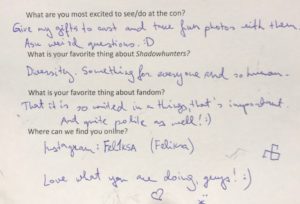 What are you most excited to see/do at the con?
Give my gifts to cast and true fun photos with them.
Ask weird questions. :D
What is your favorite thing about Shadowhunters?
Diversity. Something for everyone and so human.
What is your favorite thing about fandom?
That it is so united in a things, that's important.
And quite polite as well! :)
Where can we find you online?
Instagram: FEL1KSA (Feliksa)
Love what you are doing guys! :)